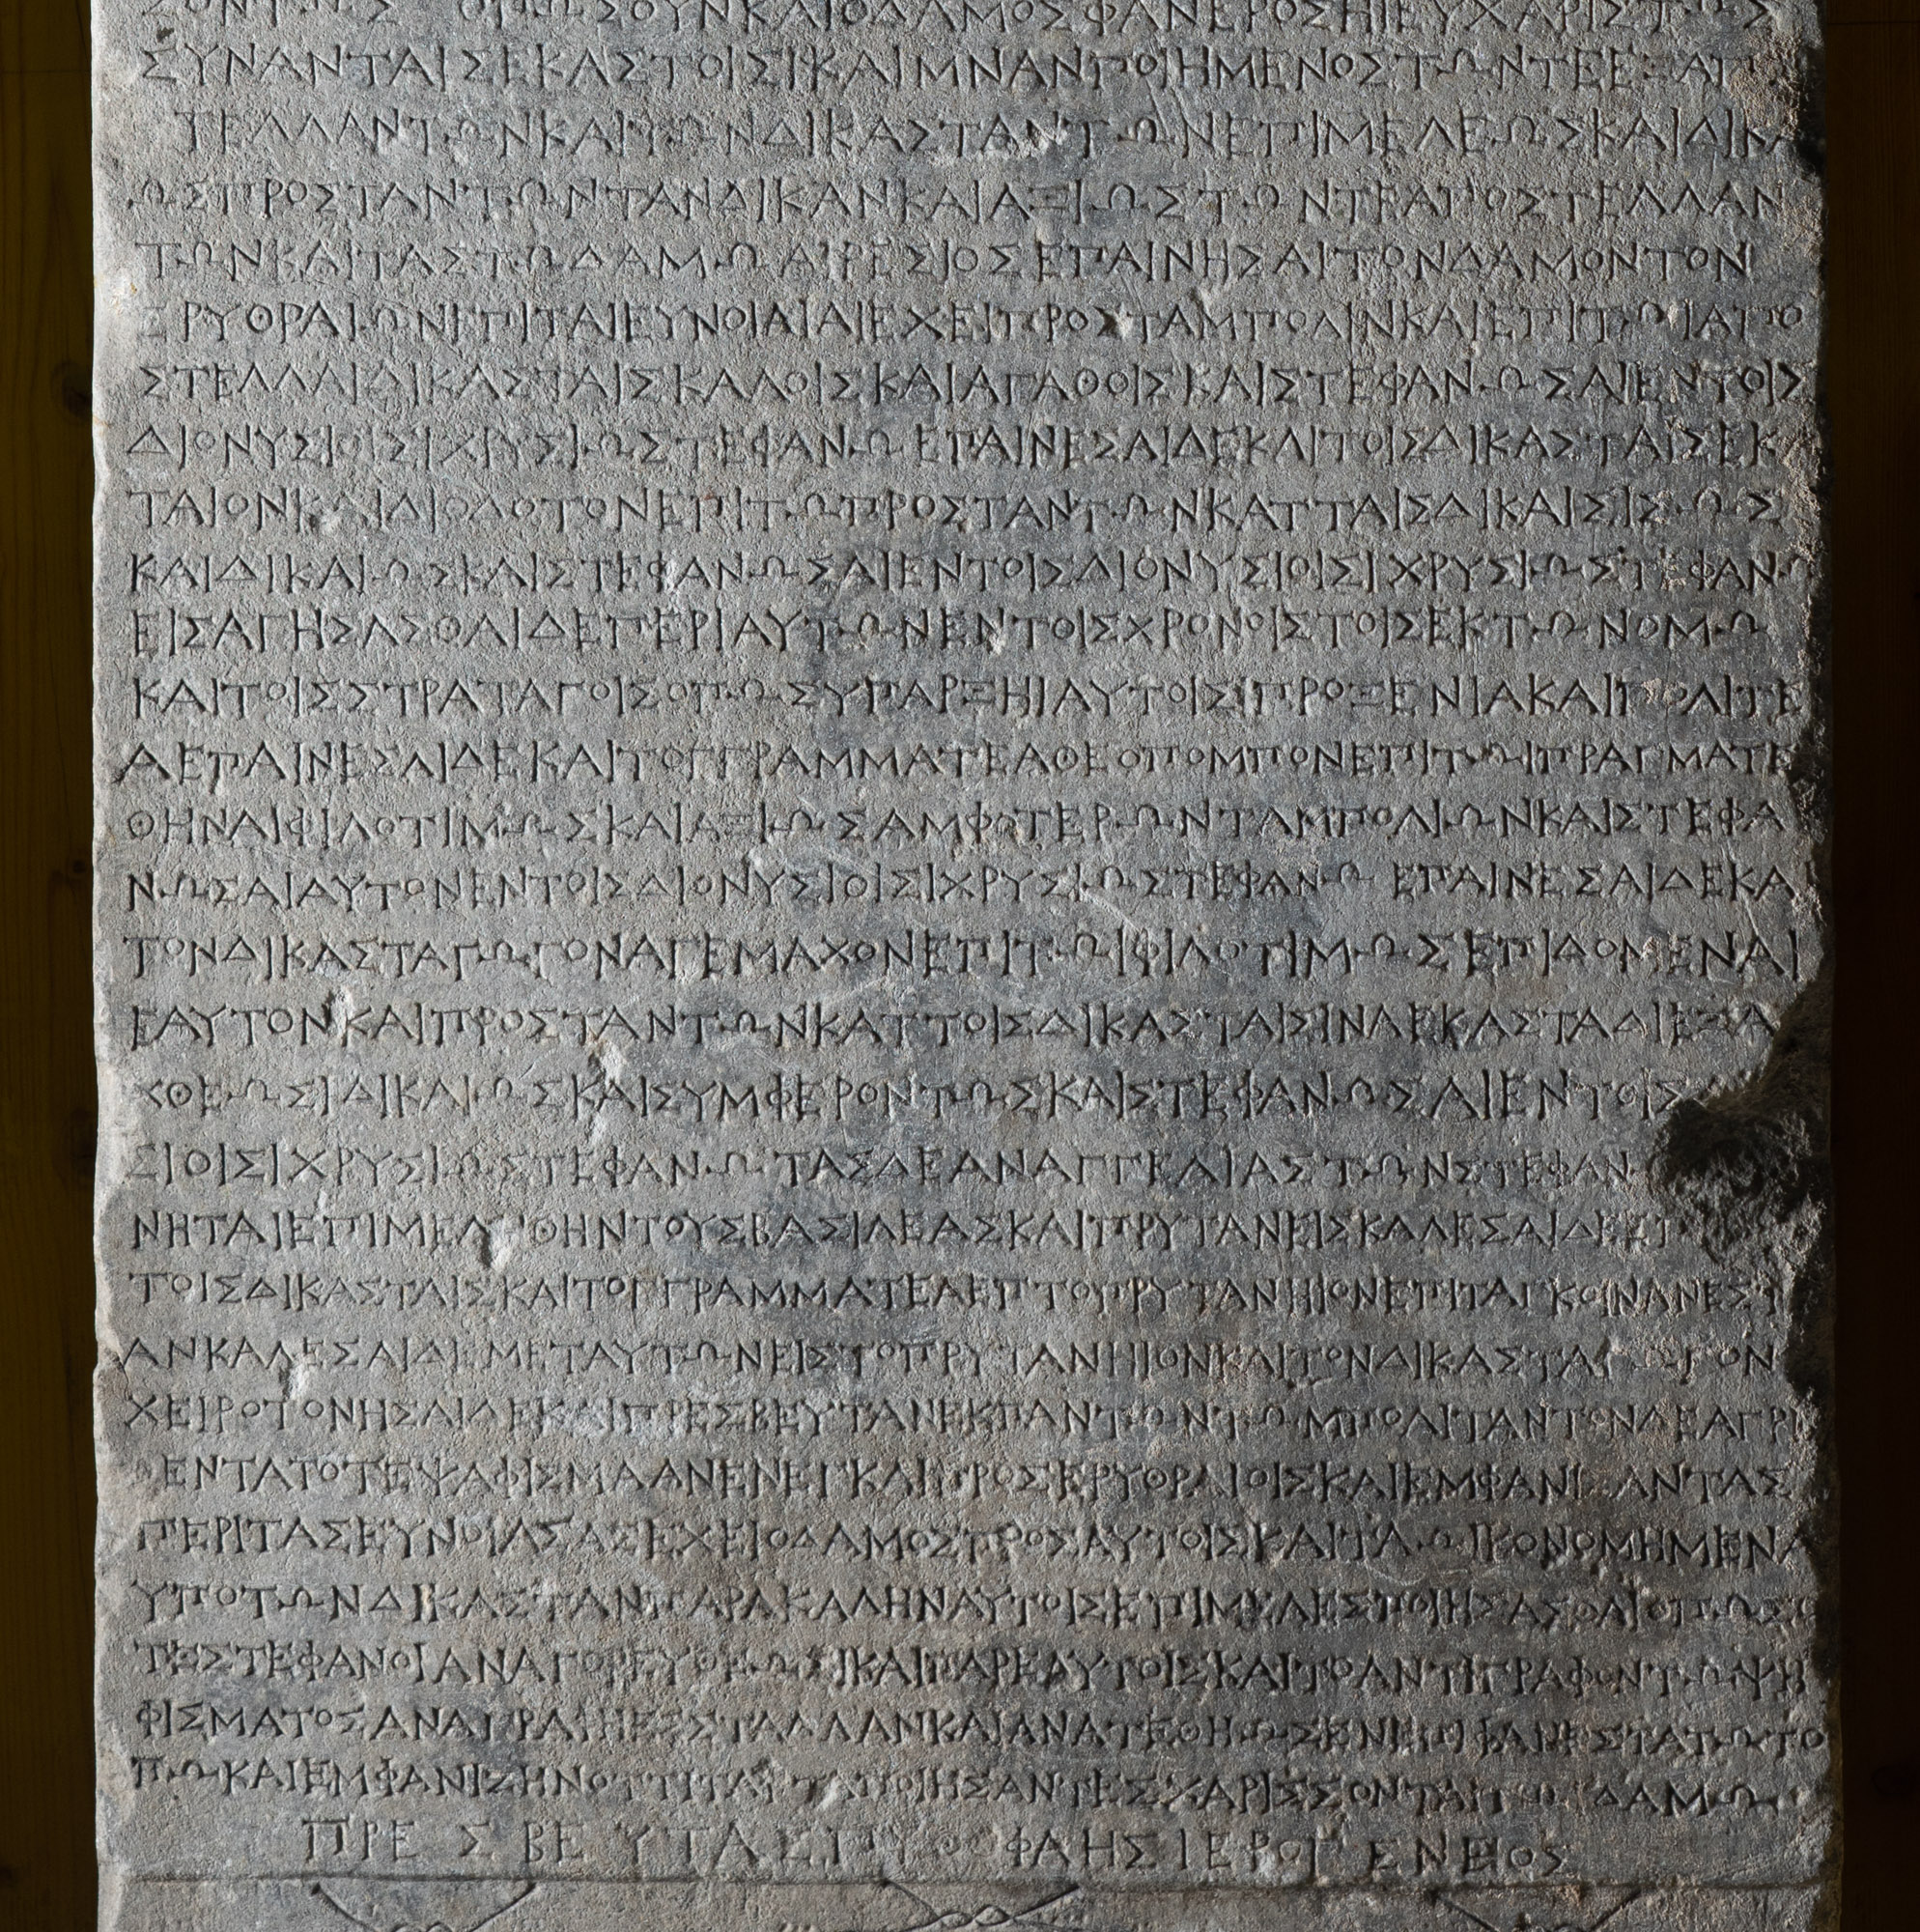 ΣΟΥΝΚΑΙΟΔΑΜΟΣΦΑΝΕΡΟΣΗΙΕΥΧΑΡΙΣΤΩΣ
ΣΥΝΑΝΤΑΙΣΕΚΑΣΤΟΙΣΙΚΑΙΜΝΑΝΠΟΙΗΜΕΝΟΣΤΩΝΤΕΕΞΑΠ
ΤΕΛΛΑΝΤΩΝΚΑΙΤΩΝΔΙΚΑΣΤΑΝΤΩΝΕΠΙΜΕΛΕΩΣΚΑΙΔΙΚΑ
ΩΣΠΡΟΣΤΑΝΤΩΝΤΑΝΔΙΚΑΝΚΑΙΑΞΙΩΣΤΩΝΤΕΑΠΟΣΤΕΛΛΑΝ
ΤΩΝΚΑΙΤΑΣΤΩΔΑΜΩΑΙΡΕΣΙΟΣΕΠΑΙΝΗΣΑΙΤΟΝΔΑΜΟΝΤΟΝ
ΕΡΥΘΡΑΙΩΝΕΠΙΤΑΙΕΥΝΟΙΑΙΑΙΕΧΕΙΠΡΟΣΤΑΜΠΟΛΙΝΚΑΙΕΠΙΤΩΙΑΠΟ
ΣΤΕΛΛΑΙΔΙΚΑΣΤΑΙΣΚΑΛΟΙΣΚΑΙΑΓΑΘΟΙΣΚΑΙΣΤΕΦΑΝΩΣΑΙΕΝΤΟΙΣ
ΔΙΟΝΥΣΙΟΙΣΙΧΡΥΣΙΩΣΤΕΦΑΝΩ ΕΠΑΙΝΕΣΑΙΔΕΚΑΙΤΟΙΣΔΙΚΑΣΤΑΙΣΕΚ
ΤΑΙΟΝΚΑΙΔΙΟΔΟΤΟΝΕΠΙΤΩΠΡΟΣΤΑΝΤΩΝΚΑΤΤΑΙΣΔΙΚΑΙΣΙΣΩΣ
ΚΑΙΔΙΚΑΙΩΣΚΑΙΣΤΕΦΑΝΩΣΑΙΕΝΤΟΙΣΔΙΟΝΥΣΙΟΙΣΙΧΡΥΣΙΩΣΤΕΦΑΝΩ
ΕΙΣΑΓΗΣΑΣΘΑΙΔΕΠΕΡΙΑΥΤΩΝΕΝΤΟΙΣΧΡΟΝΟΙΣΤΟΙΣΕΚΤΩΝΟΜΩ
ΚΑΙΤΟΙΣΣΤΡΑΤΑΓΟΙΣΟΠΩΣΥΠΑΡΞΗΙΑΥΤΟΙΣΙΠΡΟΞΕΝΙΑΚΑΙΠΟΛΙΤΕ
ΑΕΠΑΙΝΕΣΑΙΔΕΚΑΙΤΟΓΓΡΑΜΜΑΤΕΑΘΕΟΠΟΜΠΟΝΕΠΙΤΩΙΠΡΑΓΜΑΤΕ
ΘΗΝΑΙΦΙΛΟΤΙΜΩΣΚΑΙΑΞΙΩΣΑΜΦΟΤΕΡΩΝΤΑΜΠΟΛΙΩΝΚΑΙΣΤΕΦΑ
ΝΩΣΑΙΑΥΤΟΝΕΝΤΟΙΣΔΙΟΝΥΣΙΟΙΣΙΧΡΥΣΙΩΣΤΕΦΑΝΩ ΕΠΑΙΝΕΣΑΙΔΕΚΑΙ
ΤΟΝΔΙΚΑΣΤΑΓΩΓΟΝΑΓΕΜΑΧΟΝΕΠΙΤΩΙΦΙΛΟΤΙΜΩΣΕΠΙΔΟΜΕΝΑΙ
ΕΑΥΤΟΝΚΑΙΠΡΟΣΤΑΝΤΩΝΚΑΤΤΟΙΣΔΙΚΑΣΤΑΙΣΙΝΑΕΚΑΣΤΑΔΙΕΞΑ
ΧΘΕΩΣΙΔΙΚΑΙΩΣΚΑΙΣΥΜΦΕΡΟΝΤΩΣΚΑΙΣΤΕΦΑΝΩΣΑΙΕΝΤΟΙΣ
ΣΙΟΙΣΙΧΡΥΣΙΩΣΤΕΦΑΝΩ ΤΑΣΔΕΑΝΑΓΓΕΛΙΑΣΤΩΝΣΤΕΦΑΝ
ΝΗΤΑΙΕΠΙΜΕΛΗΘΗΝΤΟΥΣΒΑΣΙΛΕΑΣΚΑΙΠΡΥΤΑΝΕΙΣΚΑΛΕΣΑΙΔΕΣΤ
ΤΟΙΣΔΙΚΑΣΤΑΙΣΚΑΙΤΟΓΓΡΑΜΜΑΤΕΑΕΠΤΟΠΡΥΤΑΝΗΙΟΝΕΠΙΤΑΓΚΟΙΝΑΝΕΣΤ
ΑΝΚΑΛΕΣΑΙΔΕΜΕΤΑΥΤΩΝΕΙΣΤΟΠΡΥΤΑΝΗΙΟΝΚΑΙΤΟΝΔΙΚΑΣΤΑΓΩΓΟΝ
ΧΕΙΡΟΤΟΝΗΣΑΙΔΕΚΑΙΠΡΕΣΒΕΥΤΑΝΕΚΠΑΝΤΩΝΤΩΜΠΟΛΙΤΑΝΤΟΝΔΕΑΓΡΕ
ΘΕΝΤΑΤΟΤΕΨΑΦΙΣΜΑΑΝΕΝΕΓΚΑΙΠΡΟΣΕΡΥΘΡΑΙΟΙΣΚΑΙΕΜΦΑΝΙ ΑΝΤΑΣ
ΠΕΡΙΤΑΣΕΥΝΟΙΑΣΑΣΕΧΕΙΟΔΑΜΟΣΠΡΟΣΑΥΤΟΙΣΚΑΙΤΑΩΙΚΟΝΟΜΗΜΕΝΑ
ΥΠΟΤΩΝΔΙΚΑΣΤΑΝΠΑΡΑΚΑΛΗΝΑΥΤΟΙΣΕΠΙΜΕΛΕΣΠΟΙΗΣΑΣΘΑΙΟΠΩΣΟ
ΤΕΣΤΕΦΑΝΟΙΑΝΑΓΟΡΕΥΘΕΩΣΙΚΑΙΠΑΡΕΑΥΤΟΙΣΚΑΙΤΟΑΝΤΙΓΡΑΦΟΝΤΩΨΗ
ΦΙΣΜΑΤΟΣΑΝΑΓΡΑΦΗΕΣΣΤΑΛΛΑΝΚΑΙΑΝΑΤΕΘΗΩΣΕΝΕΠΙΦΑΝΕΣΤΑΤΩΤΟ
ΠΩΚΑΙΕΜΦΑΝΙΖΗΝΟΤΤΙΤΑΥΤΑΠΟΙΗΣΑΝΤΕΣΧΑΡΙΣΣΟΝΤΑΙΤΩΔΑΜΩ
ΠΡΕΣΒΕΥΤΑΣΠΥΘΟΦΑΗΣΙΕΡΟΓΕΝΕΙΟΣ